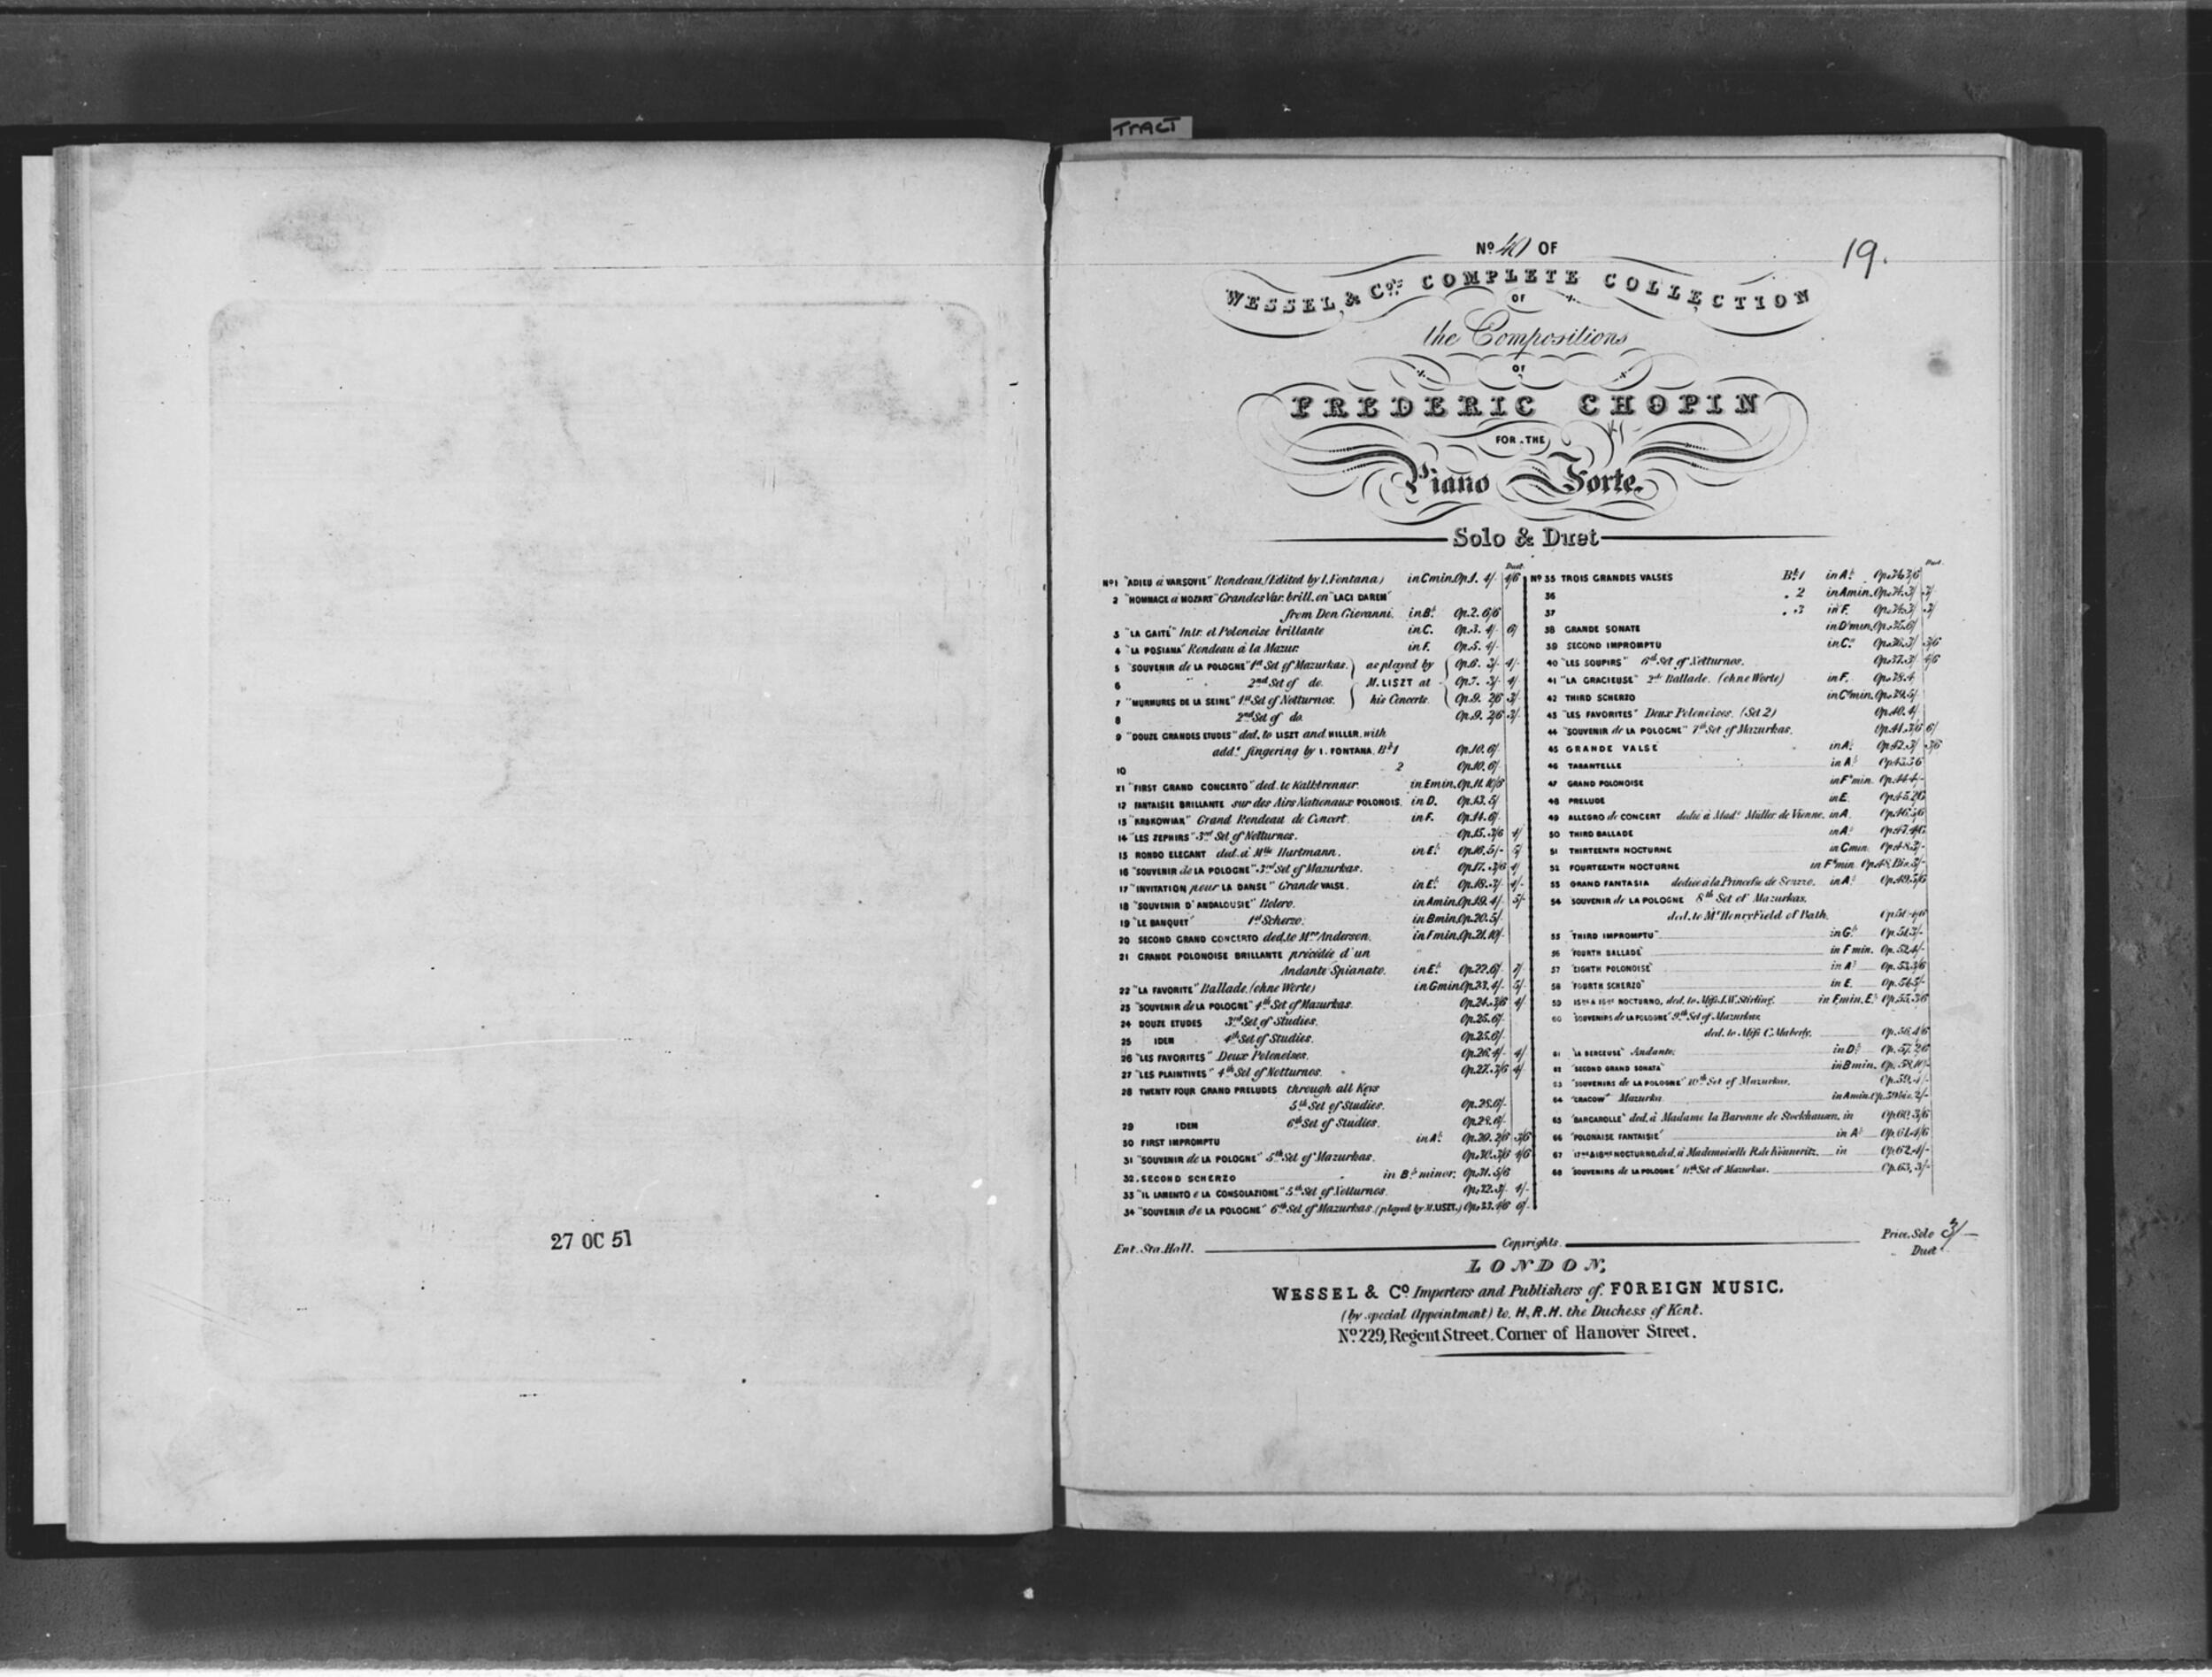 TRACT
27 OC 51
19.
No 40 OF
WESSEL & Co's COMPLETE COLLECTION
OF
the Compositions
OF
FREDERIC CHOPIN
FOR THE
Piano Forte.
Solo & Duet
Duet
No 1 "ADIEU a VARSOVIE" Rondeau, (Edited by I. Fontana) in C min. Op. 1. 4/- 4/6
2 "HOMMAGE a MOZART" Grandes Var. brill. on "LACI DAREM"
from Don Giovanni. in B♭. Op. 2. 6/6
3 "LA GAITÉ" Intr. et Polonoise brillante in C. Op. 3. 4/- 6/
4 "LA POSIANA" Rondeau à la Mazur. in F. Op. 5. 4/-
5 "SOUVENIR de LA POLOGNE" 1st Set of Mazurkas. as played by Op. 6. 3/- 4/-
6 2nd Set of do. M. LISZT at Op. 7. 3/- 4/-
7 "MURMURES DE LA SEINE" 1st Set of Notturnos. his Concerts. Op. 9. 2/6 3/-
8 2nd Set of do. Op. 9. 2/6 3/-
9 "DOUZE GRANDES ETUDES" ded. to LISZT and HILLER, with
add.l fingering by I. FONTANA. Bk 1 Op. 10. 6/-
10 2 Op. 10. 6/-
11 "FIRST GRAND CONCERTO" ded. to Kalkbrenner. in E min. Op. 11. 10/6
12 FANTAISIE BRILLANTE sur des Airs Nationaux POLONOIS. in D. Op. 13. 5/
13 "KRAKOWIAK" Grand Rondeau de Concert. in F. Op. 14. 6/-
14 "LES ZEPHIRS" 3rd Set of Notturnos. Op. 15. 3/6 4/
15 RONDO ELEGANT ded. à Mlle Hartmann. in E♭. Op. 16. 5/- 5/
16 "SOUVENIR de LA POLOGNE" 3rd Set of Mazurkas. Op. 17. 3/6 4/
17 "INVITATION pour LA DANSE" Grande VALSE. in E♭. Op. 18. 3/ 4/-
18 "SOUVENIR D'ANDALOUSIE" Bolero. in A min. Op. 19. 4/- 5/-
19 "LE BANQUET" 1st Scherzo. in B min. Op. 20. 5/-
20 SECOND GRAND CONCERTO ded. to Mrs Anderson. in F min. Op. 21. 10/-
21 GRANDE POLONOISE BRILLANTE précédée d'un
Andante Spianato. in E♭. Op. 22. 6/-
22 "LA FAVORITE" Ballade. (ohne Worte) in G min. Op. 23. 4/- 5/-
23 "SOUVENIR de LA POLOGNE" 4th Set of Mazurkas. Op. 24. 3/6 4/
24 DOUZE ETUDES 3rd Set of Studies. Op. 25. 6/-
25 IDEM 4th Set of Studies. Op. 25. 6/-
26 "LES FAVORITES" Deux Polonoises. Op. 26. 4/- 4/
27 "LES PLAINTIVES" 4th Set of Notturnos. Op. 27. 3/6 4/
28 TWENTY FOUR GRAND PRELUDES through all Keys
5th Set of Studies. Op. 28. 6/-
29 IDEM 6th Set of Studies. Op. 28. 6/-
30 FIRST IMPROMPTU in A♭. Op. 29. 2/6 3/6
31 "SOUVENIR de LA POLOGNE" 5th Set of Mazurkas. Op. 30. 3/6 4/6
32. SECOND SCHERZO in B♭ minor. Op. 31. 5/6
33 "IL LAMENTO e LA CONSOLAZIONE" 5th Set of Notturnos. Op. 32. 3/ 4/-
34 "SOUVENIR de LA POLOGNE" 6th Set of Mazurkas. (played by M. LISZT.) Op. 33. 4/6 6/-
Duet.
No 35 TROIS GRANDES VALSES Bk 1 in A♭ Op. 34. 3/6
36 . 2 in A min. Op. 34. 3/ 3/
37 . 3 in F. Op. 34. 3/ 3/
38 GRANDE SONATE Op. 35. 6/
39 SECOND IMPROMPTU Op. 36. 3/ 3/6
40 "LES SOUPIRS" 6th Set of Notturnos. Op. 37. 3/ 4/6
41 "LA GRACIEUSE" 2de Ballade. (ohne Worte) in F. Op. 38. 4
42 THIRD SCHERZO in C♯ min. Op. 39. 5/
43 "LES FAVORITES" Deux Polonoises. (Set 2) Op. 40. 4/
44 "SOUVENIR de LA POLOGNE" 7th Set of Mazurkas. Op. 41. 3/6 6/
45 GRANDE VALSE in A♭ Op. 42. 3/ 3/6
46 TARANTELLE in A♭ Op. 43. 3/6
47 GRAND POLONOISE in F♯ min. Op. 44. 4/-
48 PRELUDE in E. Op. 45. 2/6
49 ALLEGRO de CONCERT dedié à Madle Müller de Vienne. in A. Op. 46. 5/6
50 THIRD BALLADE in A♭ Op. 47. 4/6
51 THIRTEENTH NOCTURNE in C min. Op. 48. 3/-
52 FOURTEENTH NOCTURNE in F♯ min. Op. 48. Bis. 3/-
53 GRAND FANTASIA dediée à la Princesse de Souzzo. in A♭ Op. 49. 5/6
54 SOUVENIR de LA POLOGNE 8th Set of Mazurkas.
ded. to Mr Henry Field of Bath.
55 "THIRD IMPROMPTU" in G♭ Op. 51. 3/-
56 "FOURTH BALLADE" in F min. Op. 52. 4/-
57 "EIGHTH POLONOISE" in A♭ Op. 53. 3/6
58 "FOURTH SCHERZO" in E. Op. 54. 5/-
59 15me & 16me NOCTURNO, ded. to Miss J. W. Stirling. in F min. E♭ Op. 55. 3/6
60 "SOUVENIRS de LA POLOGNE" 9th Set of Mazurkas.
ded. to Miss C. Maberly. Op. 56. 4/6
61 "LA BERCEUSE" Andante. in D♭ Op. 57. 2/6
62 "SECOND GRAND SONATA" in B min. Op. 58.
63 "SOUVENIRS de LA POLOGNE" 10th Set of Mazurkas. Op. 59. 4/-
64 "CRACOW" Mazurka in A min. Op. 59 bis. 2/-
65 "BARCAROLLE" ded. à Madame la Baronne de Stockhausen, in Op. 60. 3/6
66 "POLONAISE FANTAISIE" in A♭ Op. 61. 4/6
67 17me & 18me NOCTURNO, ded. à Mademoiselle R. de Könneritz. in Op. 62. 4/-
68 "SOUVENIRS de LA POLOGNE" 11th Set of Mazurkas. Op. 63. 3/-
Ent. Sta. Hall. Copyrights. Price. Solo 3/-
Duet
LONDON,
WESSEL & Co. Importers and Publishers of FOREIGN MUSIC.
(by special Appointment) to H.R.H. the Duchess of Kent.
No 229, Regent Street. Corner of Hanover Street.